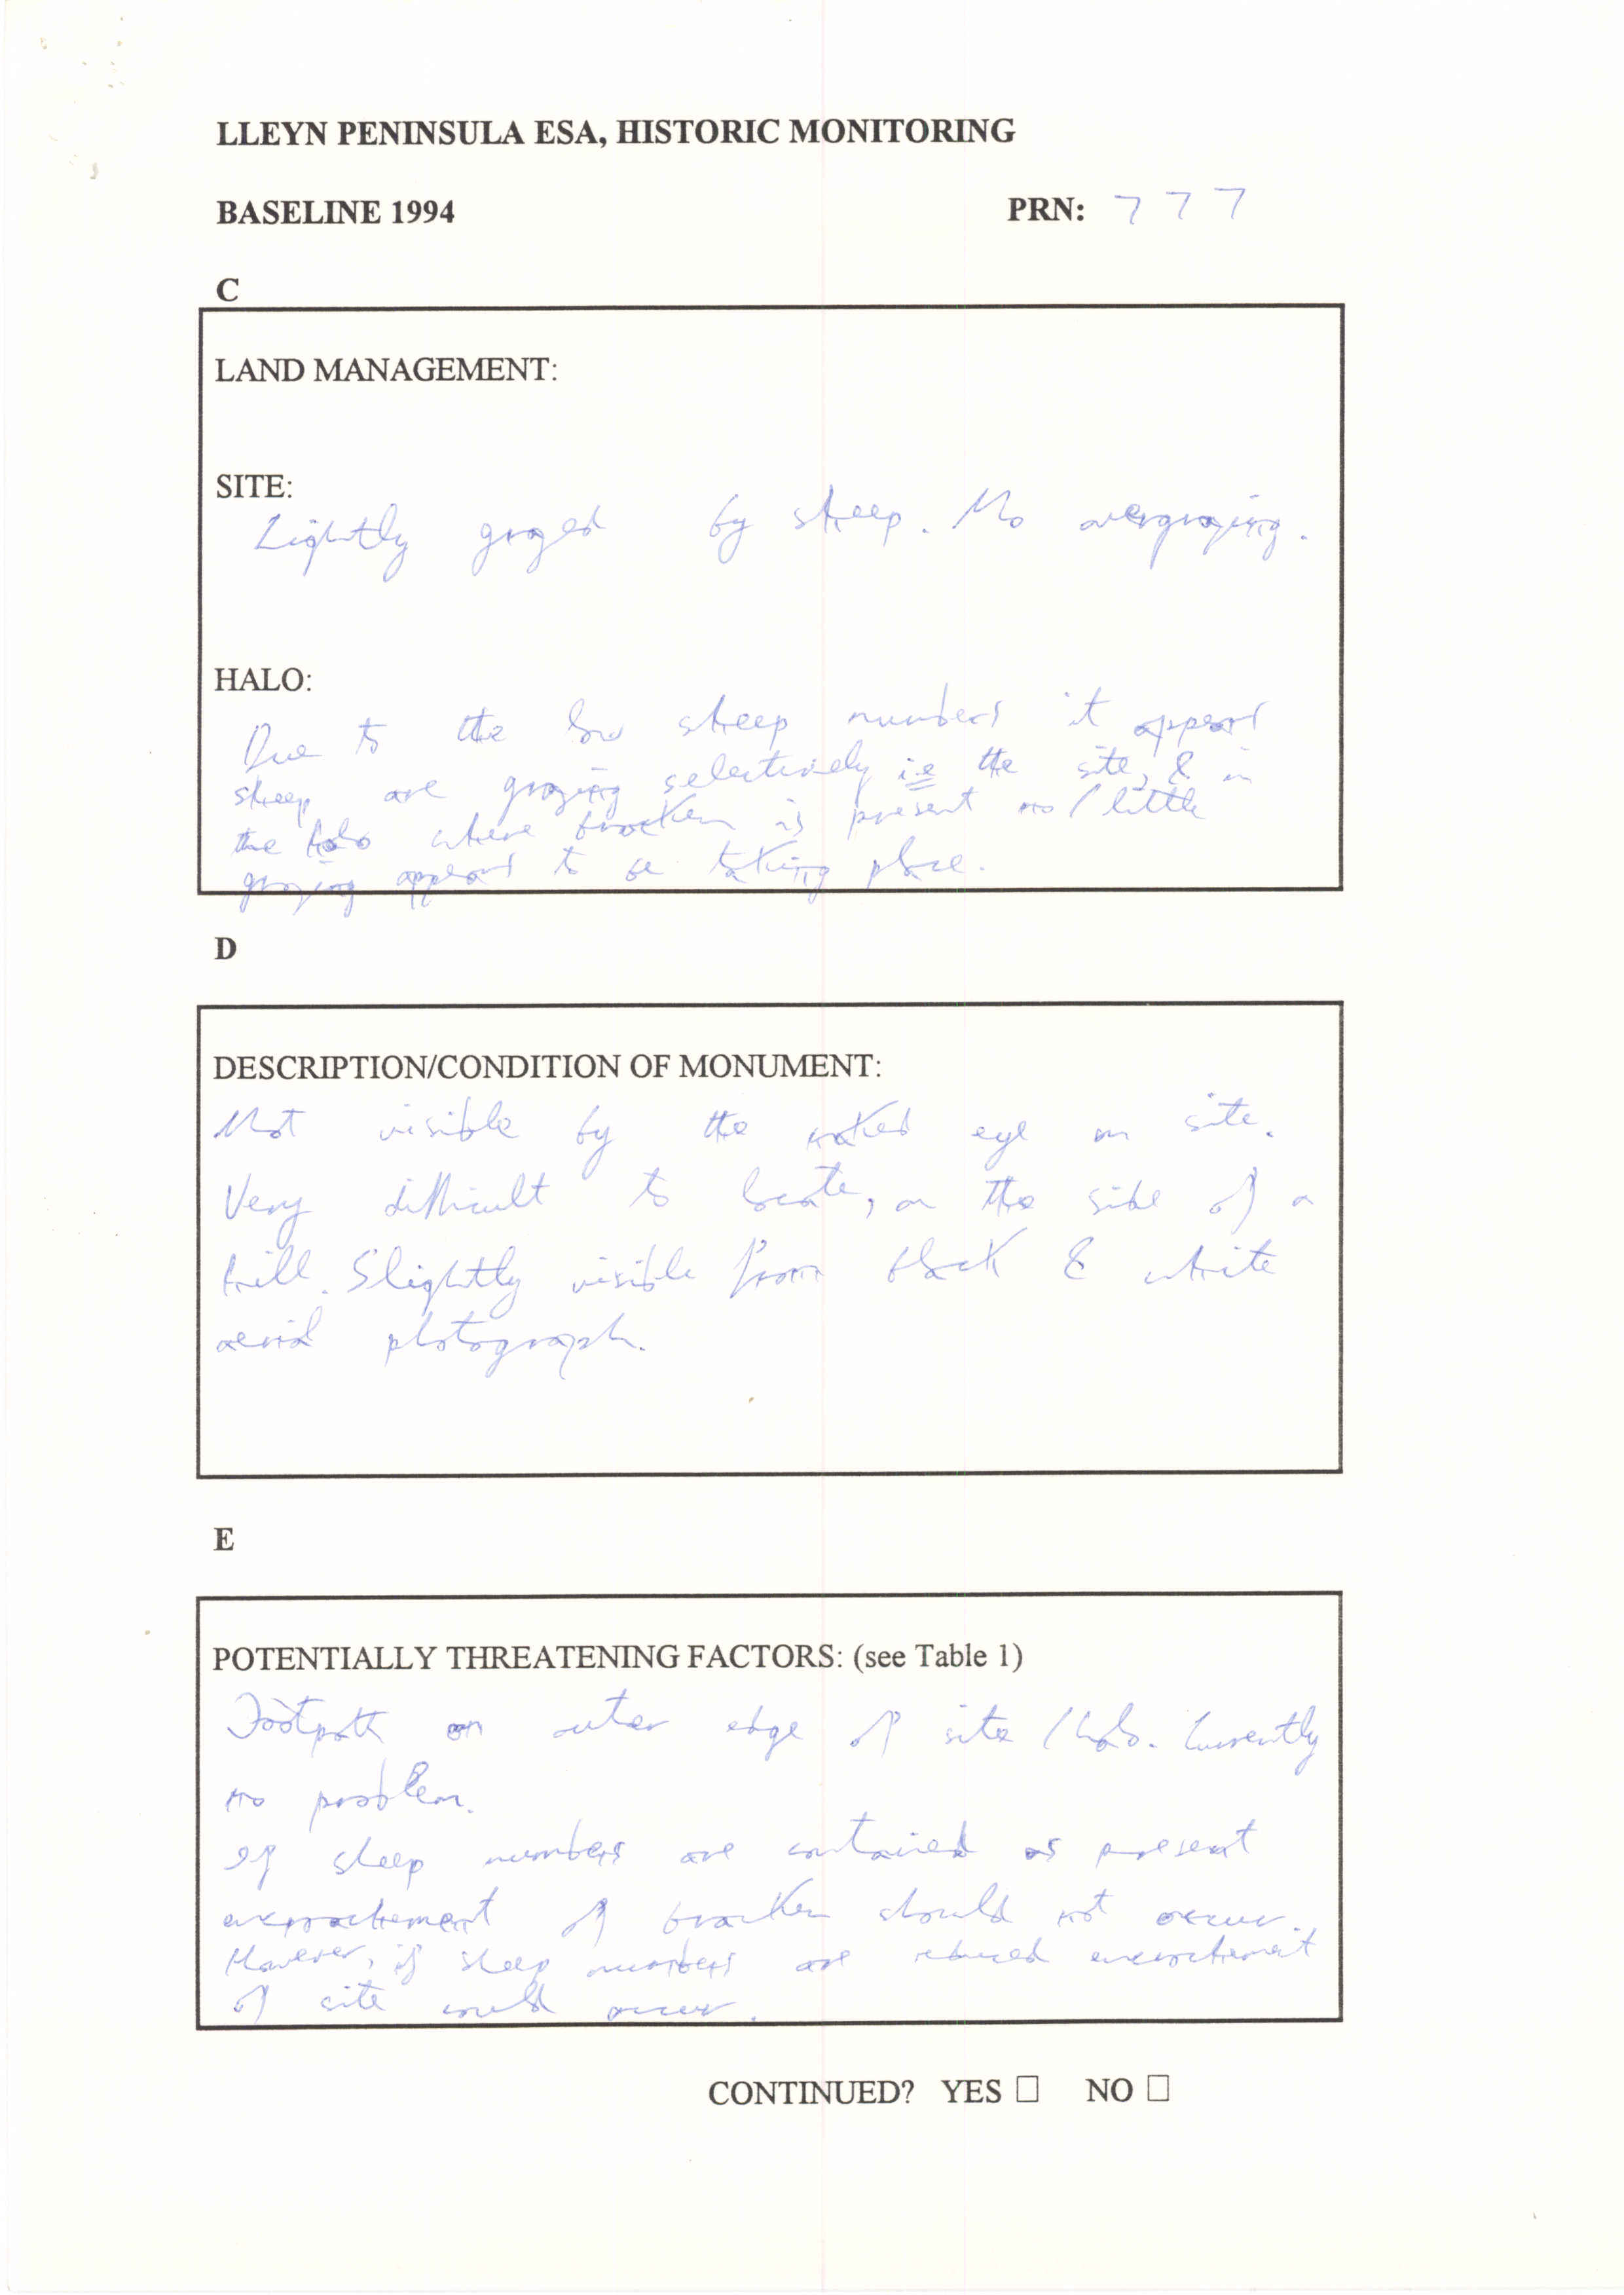 LLEYN PENINSULA ESA, HISTORIC MONITORING
BASELINE 1994 PRN: 777
C
LAND MANAGEMENT:
SITE:
Lightly grazed by sheep. No overgrazing.
HALO:
Due to the low sheep numbers it appears
sheep are grazing selectively ie the site, & in
the halo where bracken is present no/little
grazing appears to be taking place.
D
DESCRIPTION/CONDITION OF MONUMENT:
Not visible by the naked eye on site.
Very difficult to locate, on the side of a
hill. Slightly visible from black & white
aerial photograph.
E
POTENTIALLY THREATENING FACTORS: (see Table 1)
Footpath on outer edge of site/halo. Currently
no problem.
If sheep numbers are contained as present
encroachement of bracken should not occur.
However, if sheep numbers are reduced encroachment
of site could occur.
CONTINUED? YES ☐ NO ☐